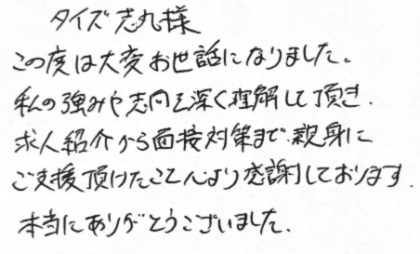 タイズ 志丸様
この度は大変お世話になりました。
私の強みや志向を深く理解して頂き、
求人紹介から面接対策まで、親身に
ご支援頂けたこと心より感謝しております。
本当にありがとうございました。